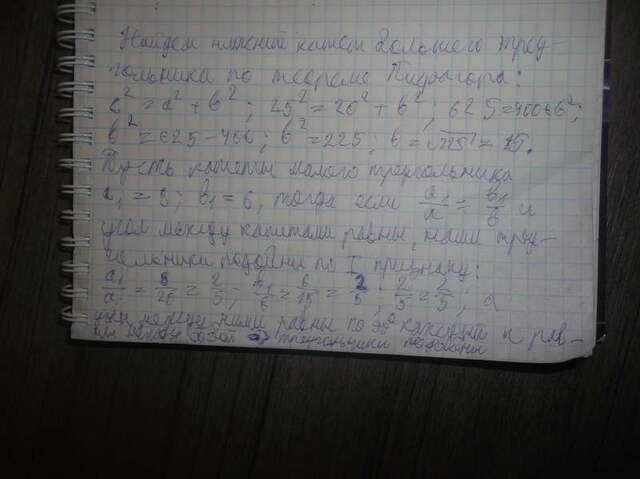 Найдем нижний катет большего треу-
гольника по теореме Пифагора:
c² = a² + b²; 25² = 20² + b²; 625 = 400 + b²;
b² = 625 - 400; b² = 225; b = √225 = 15.
Пусть катеты малого треугольника
a₁ = 8; b₁ = 6, тогда если a₁/a = b₁/b и
угол между катетами равны, наши треу-
гольники подобны по I признаку:
a₁/a = 8/20 = 2/5; b₁/b = 6/15 = 2/5; 2/5 = 2/5; а
углы между ними равны по 90° каждый и рав-
ны между собой треугольники подобны